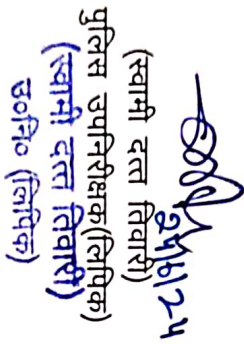 24/6/24
(स्वामी दत्त तिवारी)
पुलिस उपनिरीक्षक(लिपिक)
(स्वामी दत्त तिवारी)
उ०नि० (लिपिक)